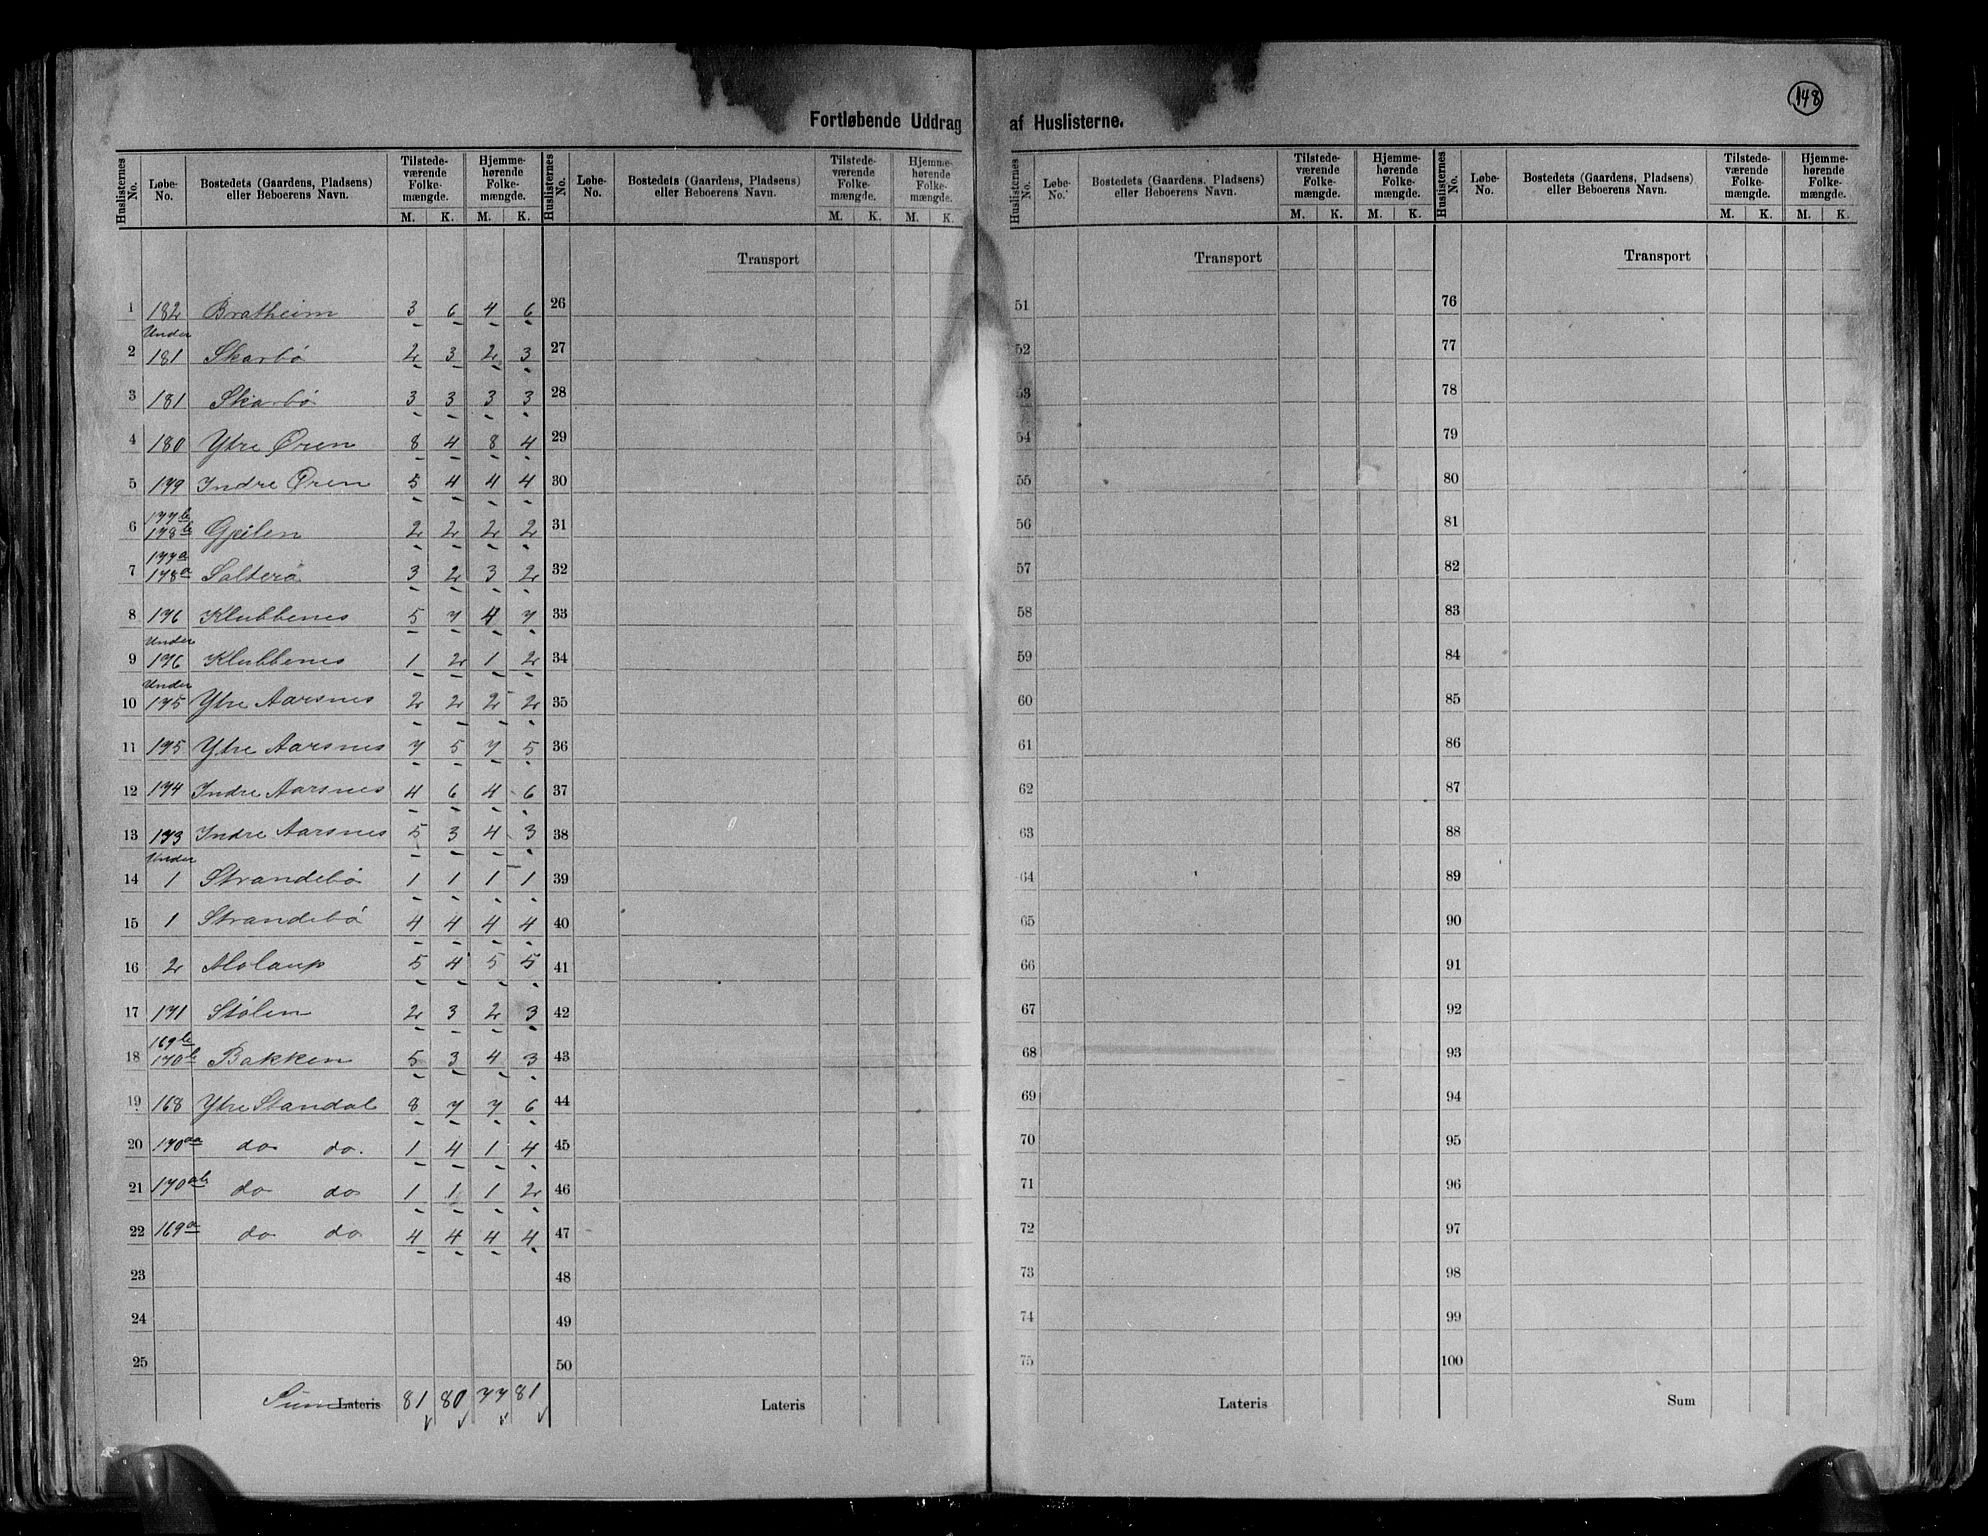 148
Fortløbende Uddrag af Huslisterne.
Huslisternes No. Løbe-No. Bostedets (Gaardens, Pladsen) eller Beboerens Navn. Tilstedeværende Folkemængde. M. K. Hjemmehørende Folkemængde. M. K.
Huslisternes No. Løbe-No. Bostedets (Gaardens, Pladsen) eller Beboerens Navn. Tilstedeværende Folkemængde. M. K. Hjemmehørende Folkemængde. M. K.
Huslisternes No. Løbe-No. Bostedets (Gaardens, Pladsen) eller Beboerens Navn. Tilstedeværende Folkemængde. M. K. Hjemmehørende Folkemængde. M. K.
Huslisternes No. Løbe-No. Bostedets (Gaardens, Pladsen) eller Beboerens Navn. Tilstedeværende Folkemængde. M. K. Hjemmehørende Folkemængde. M. K.
Transport Transport Transport
1 182 Bratheim 3 6 4 6 26 51 76
Under
2 181 Skarbö 2 3 2 3 27 52 77
3 181 Skarbö 3 3 3 3 28 53 78
4 180 Ytre Øren 8 4 8 4 29 54 79
5 179 Indre Øren 5 4 4 4 30 55 80
177b
6 178b Gjeilen 2 2 2 2 31 56 81
177a
7 178a Salterö 3 2 3 2 32 57 82
8 176 Klubbenes 5 7 4 7 33 58 83
Under
9 176 Klubbenes 1 2 1 2 34 59 84
Under
10 175 Ytre Aarsnes 2 2 2 2 35 60 85
11 175 Ytre Aarsnes 7 5 7 5 36 61 86
12 174 Indre Aarsnes 4 6 4 6 37 62 87
13 173 Indre Aarsnes 5 3 4 3 38 63 88
Under
14 1 Strandebö 1 1 1 1 39 64 89
15 1 Strandebö 4 4 4 4 40 65 90
16 2 Molaup 5 4 5 5 41 66 91
17 171 Stölen 2 3 2 3 42 67 92
169b
18 170b Bakken 5 3 4 3 43 68 93
19 168 Ytre Standal 8 7 7 6 44 69 94
20 170aa do do. 1 4 1 4 45 70 95
21 170ab do do 1 1 1 2 46 71 96
22 169a do do 4 4 4 4 47 72 97
23 48 73 98
24 49 74 99
25 50 75 100
Sum Lateris 81 80 77 81 Lateris Lateris Sum